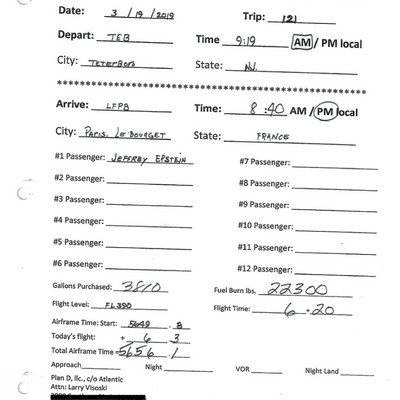 Date: 3/19/2019 Trip: 121
Depart: TEB Time 9:19 AM / PM local
City: TETERBORO State: NJ.
************************************************************
Arrive: LFPB Time: 8:40 AM / PM local
City: PARIS, LE BOURGET State: FRANCE
#1 Passenger: JEFFREY EPSTEIN #7 Passenger:
#2 Passenger: #8 Passenger:
#3 Passenger: #9 Passenger:
#4 Passenger: #10 Passenger:
#5 Passenger: #11 Passenger:
#6 Passenger: #12 Passenger:
Gallons Purchased: 3810 Fuel Burn lbs. 22300
Flight Level: FL390 Flight Time: 6+20
Airframe Time: Start: 5649 . 8
Today's flight: + 6 3
Total Airframe Time = 5656 . 1
Approach Night VOR Night Land
Plan D, llc., c/o Atlantic
Attn: Larry Visoski